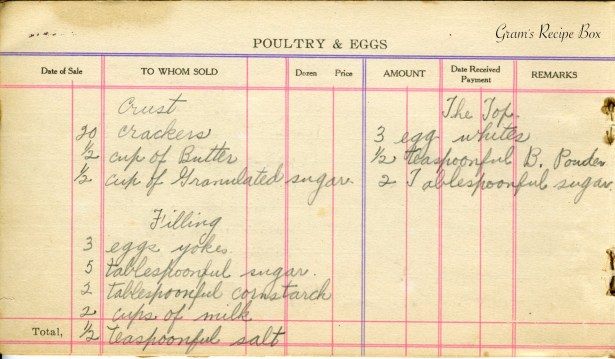 Gram's Recipe Box
POULTRY & EGGS
Date of Sale TO WHOM SOLD Dozen Price AMOUNT Date Received Payment REMARKS
Crust
20 crackers
½ cup of Butter
½ cup of Granulated sugar.
Filling
3 eggs yokes.
5 tablespoonful sugar.
2 tablespoonful cornstarch
2 cups of milk
Total, ½ teaspoonful salt
The Top.
3 egg whites
½ teaspoonful B. Powder
2 Tablespoonful sugar